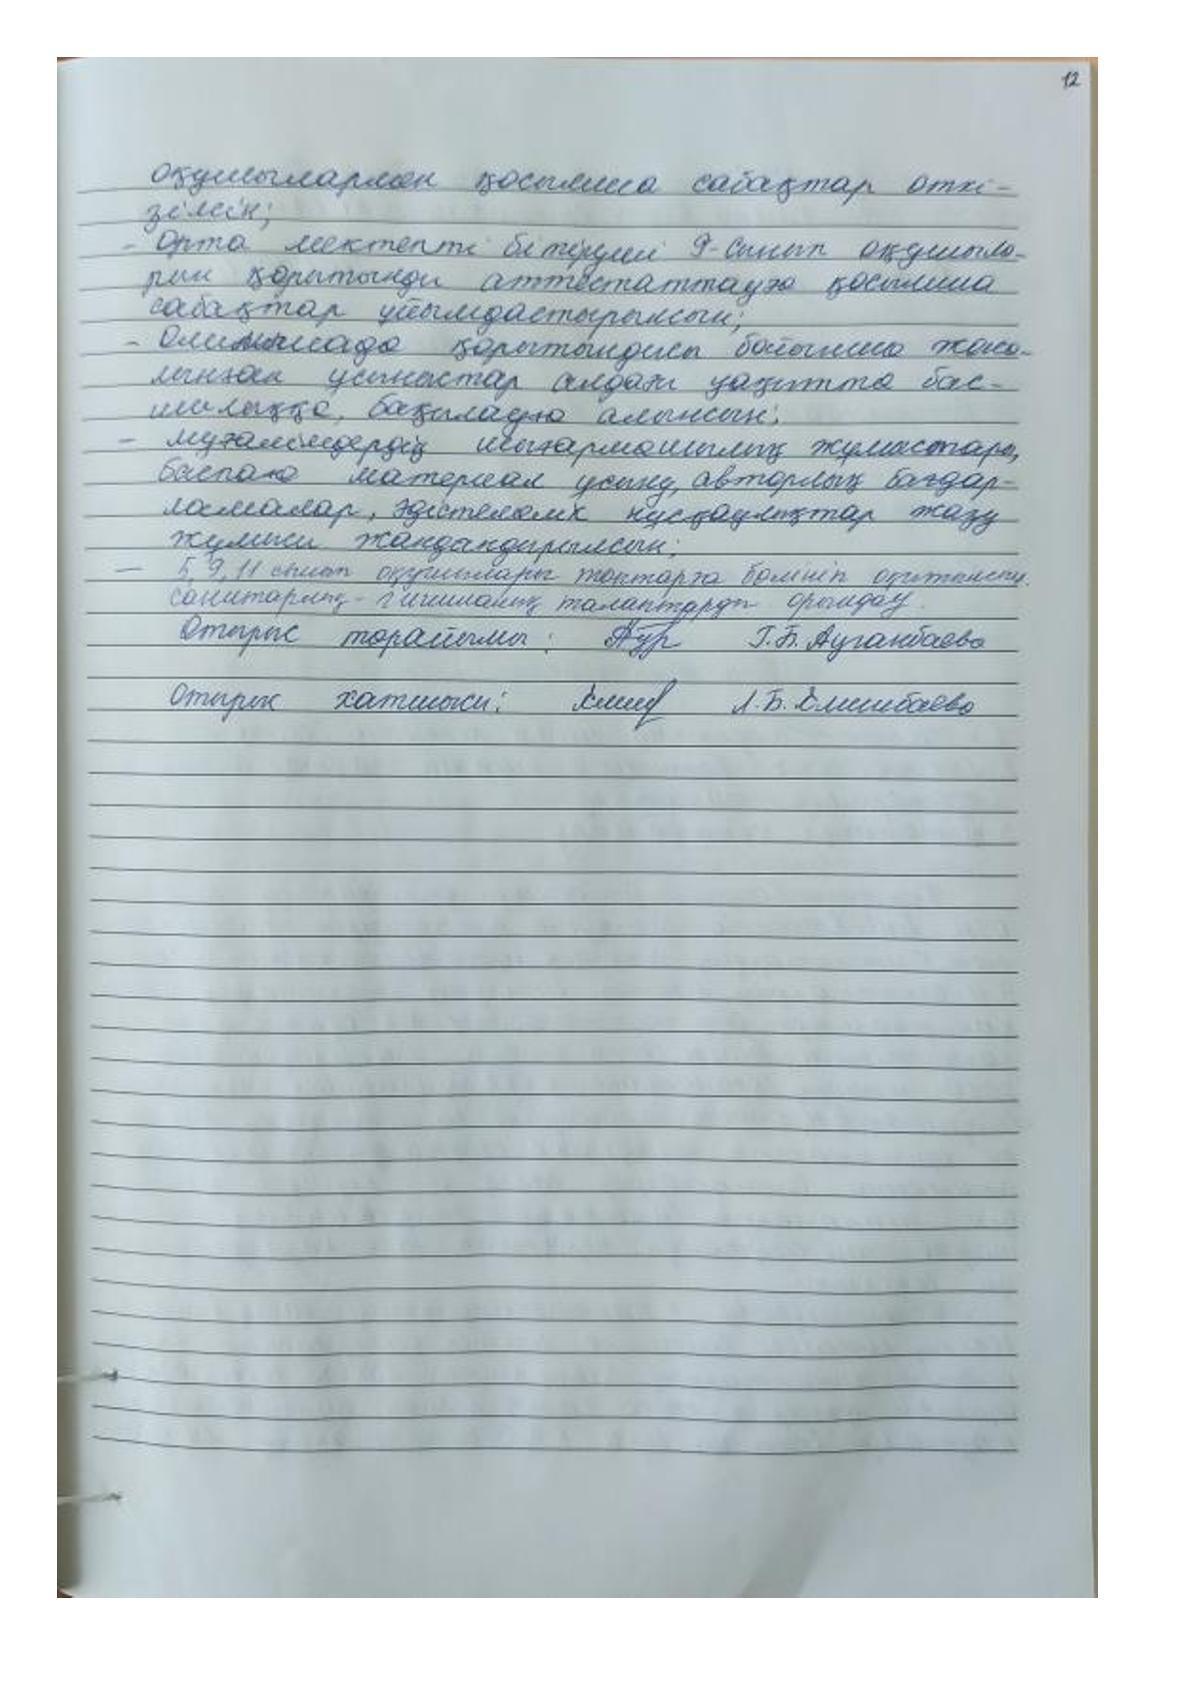 12
оқушылармен қосымша сабақтар өткі-
зілсін;
- Орта мектепті бітіруші 9-сынып оқушыла-
рын қорытынды аттестаттауға қосымша
сабақтар ұйымдастырылсын;
- Олимпиада қорытындысы бойынша жаса-
лынған ұсыныстар алдағы уақытта бас-
шылыққа, бақылауға алынсын;
- мұғалімдердің шығармашылық жұмыстары,
баспаға материал ұсыну, авторлық бағдар-
ламалар, әдістемелік нұсқаулықтар жазу
жұмысы жандандырылсын;
- 5, 9, 11 сынып оқушылары топтарға бөлініп оқытылсын.
санитарлық-гигиеналық талаптарды орындау.
Отырыс төрайымы: Г.Б. Ауганбаева
Отырыс хатшысы: Л.Б.